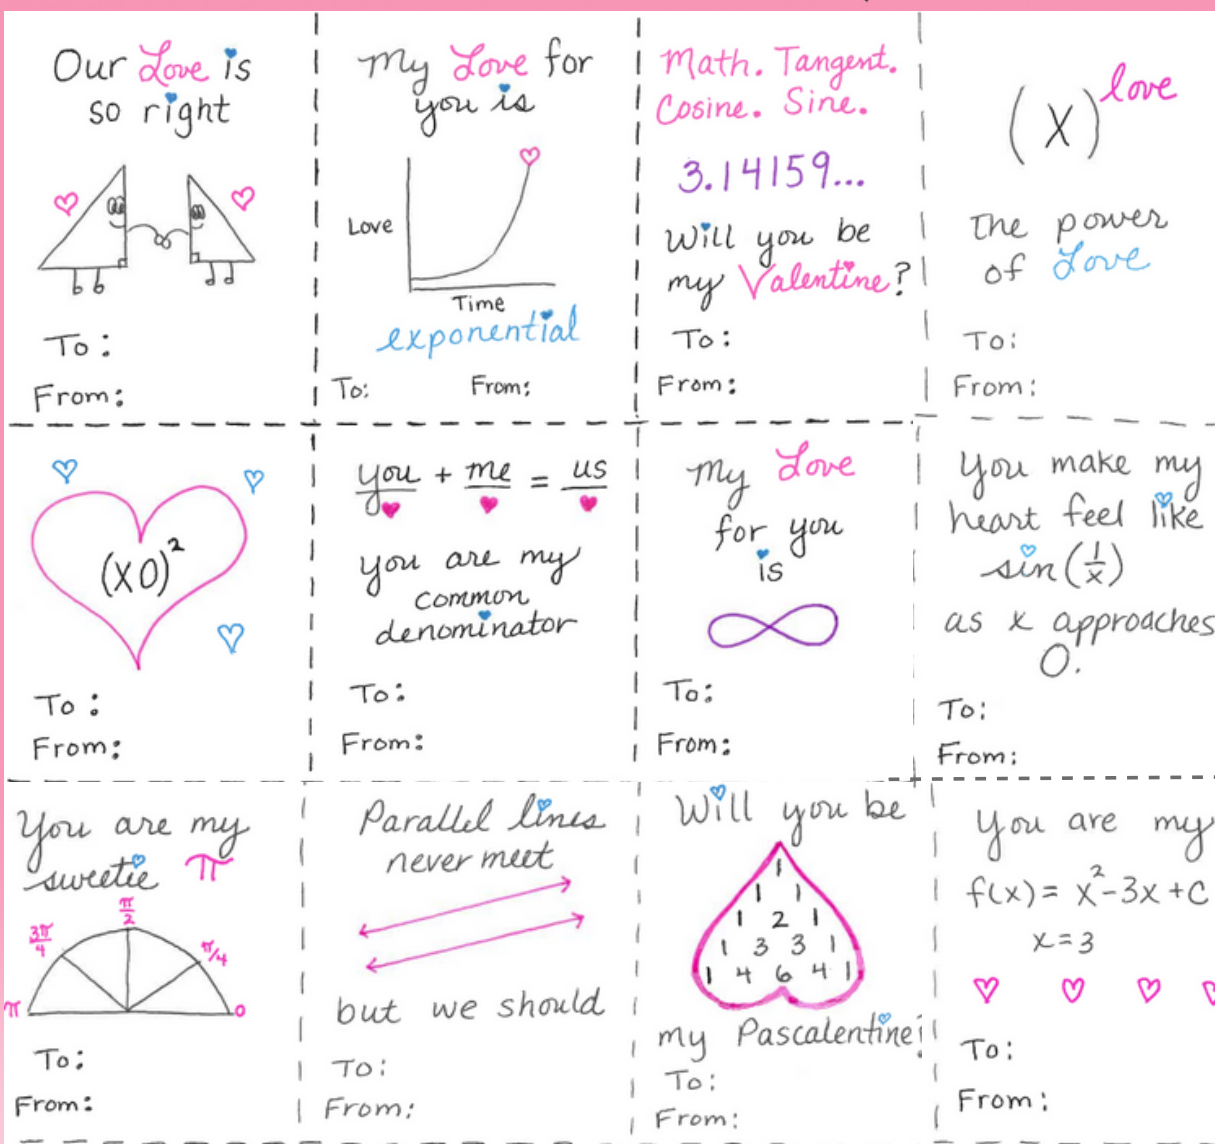 Our Love is
so right
To:
From:
My Love for
you is
Love
Time
exponential
To: From:
Math. Tangent.
Cosine. Sine.
3.14159...
Will you be
my Valentine?
To:
From:
(x)^love
The power
of Love
To:
From:
(XO)²
To:
From:
you + me = us
you are my
common
denominator
To:
From:
My Love
for you
is
∞
To:
From:
You make my
heart feel like
sin(1/x)
as x approaches
0.
To:
From:
You are my
sweetie π
π/2
3π/4 π/4
π 0
To:
From:
Parallel lines
never meet
but we should
To:
From:
Will you be
1
1 1
1 2 1
1 3 3 1
1 4 6 4 1
my Pascalentine?
To:
From:
You are my
f(x) = x²-3x+C
x=3
To:
From: